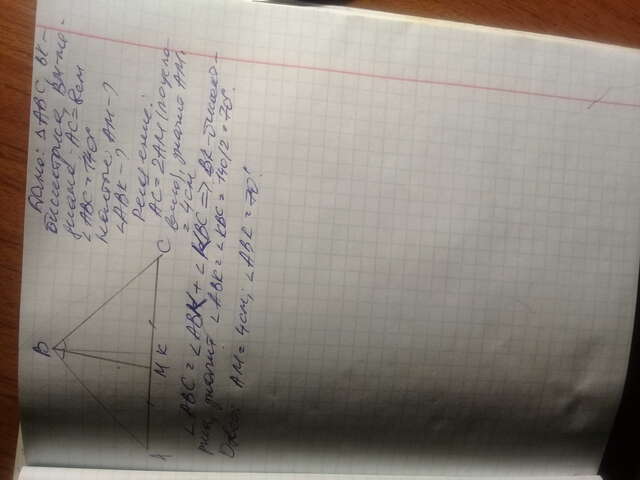 Дано: △ABC, BK -
биссектриса, BM - ме-
диана. AC = 8см
∠ABC = 140°
Найти: AM - ?
∠ABK - ?
Решение:
AC = 2AM (по усло-
вию), значит AM
= 4см
∠ABC = ∠ABK + ∠KBC => BK - биссект-
риса, значит ∠ABK = ∠KBC = 140/2 = 70°
Ответ: AM = 4см; ∠ABK = 70°.
B
A
M K
C